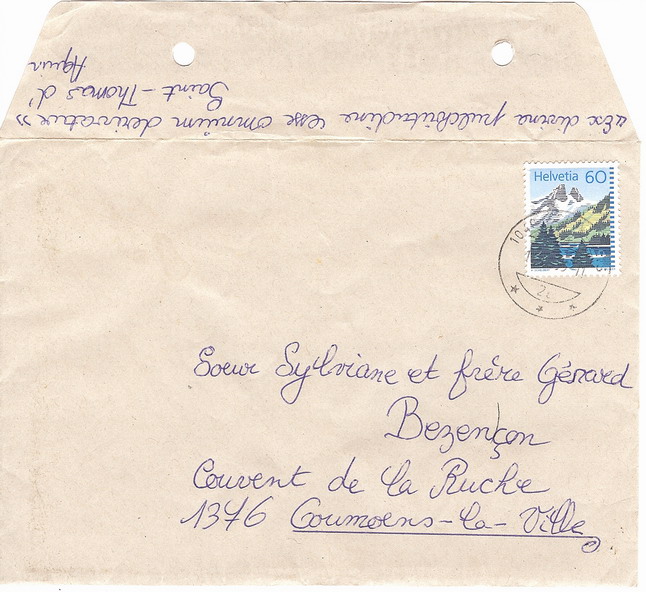 «Ex divina pulchritudine esse omnium derivatur»
Saint-Thomas d'
Aquin
Helvetia 60
Soeur Sylviane et frère Gérard
Bezençon
Couvent de la Ruche
1376 Goumoens-la-Ville